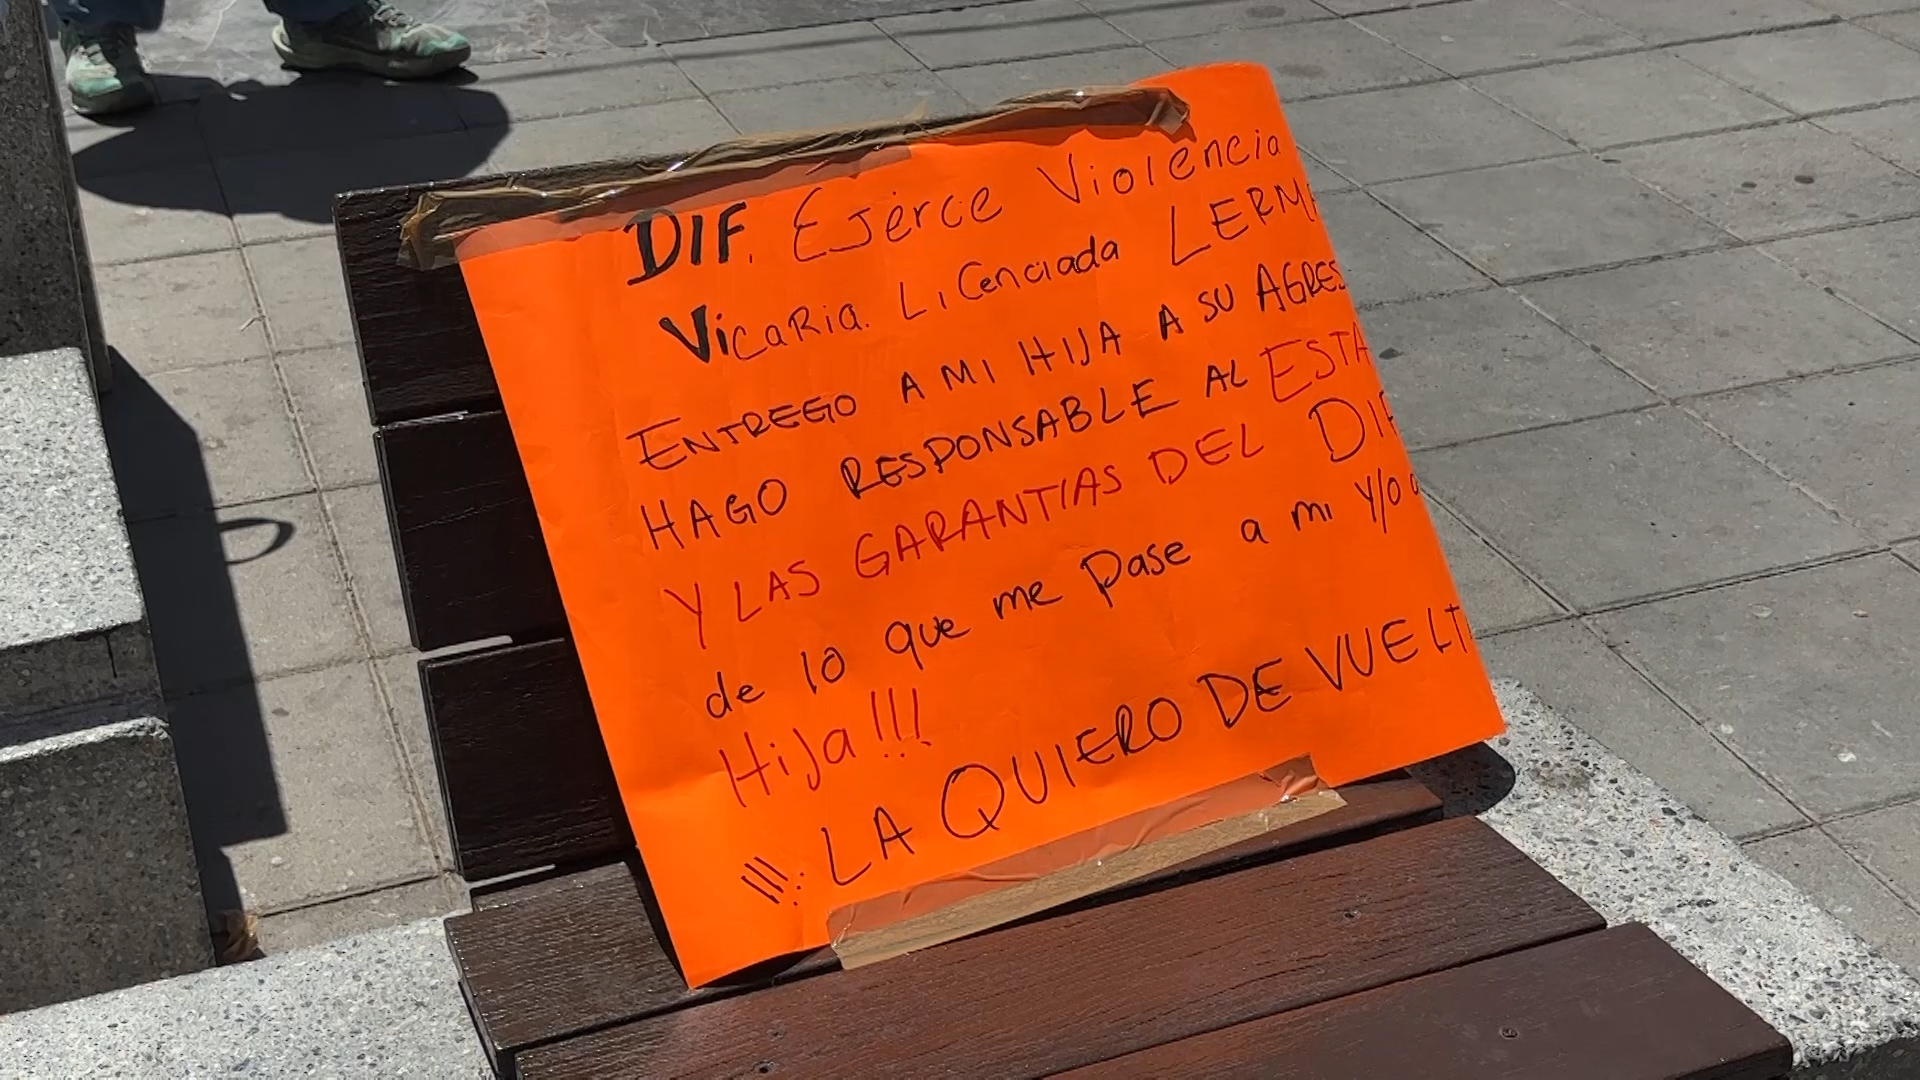 DIF. Ejerce Violencia
VicaRia. LiCenciada LERM
ENTREGO A MI HIJA A SU AGRES
HAGO RESPONSABLE AL ESTA
Y LAS GARANTIAS DEL DIF
de lo que me pase a mi Y/O
Hija!!!
!!!. LA QUIERO DE VUELT